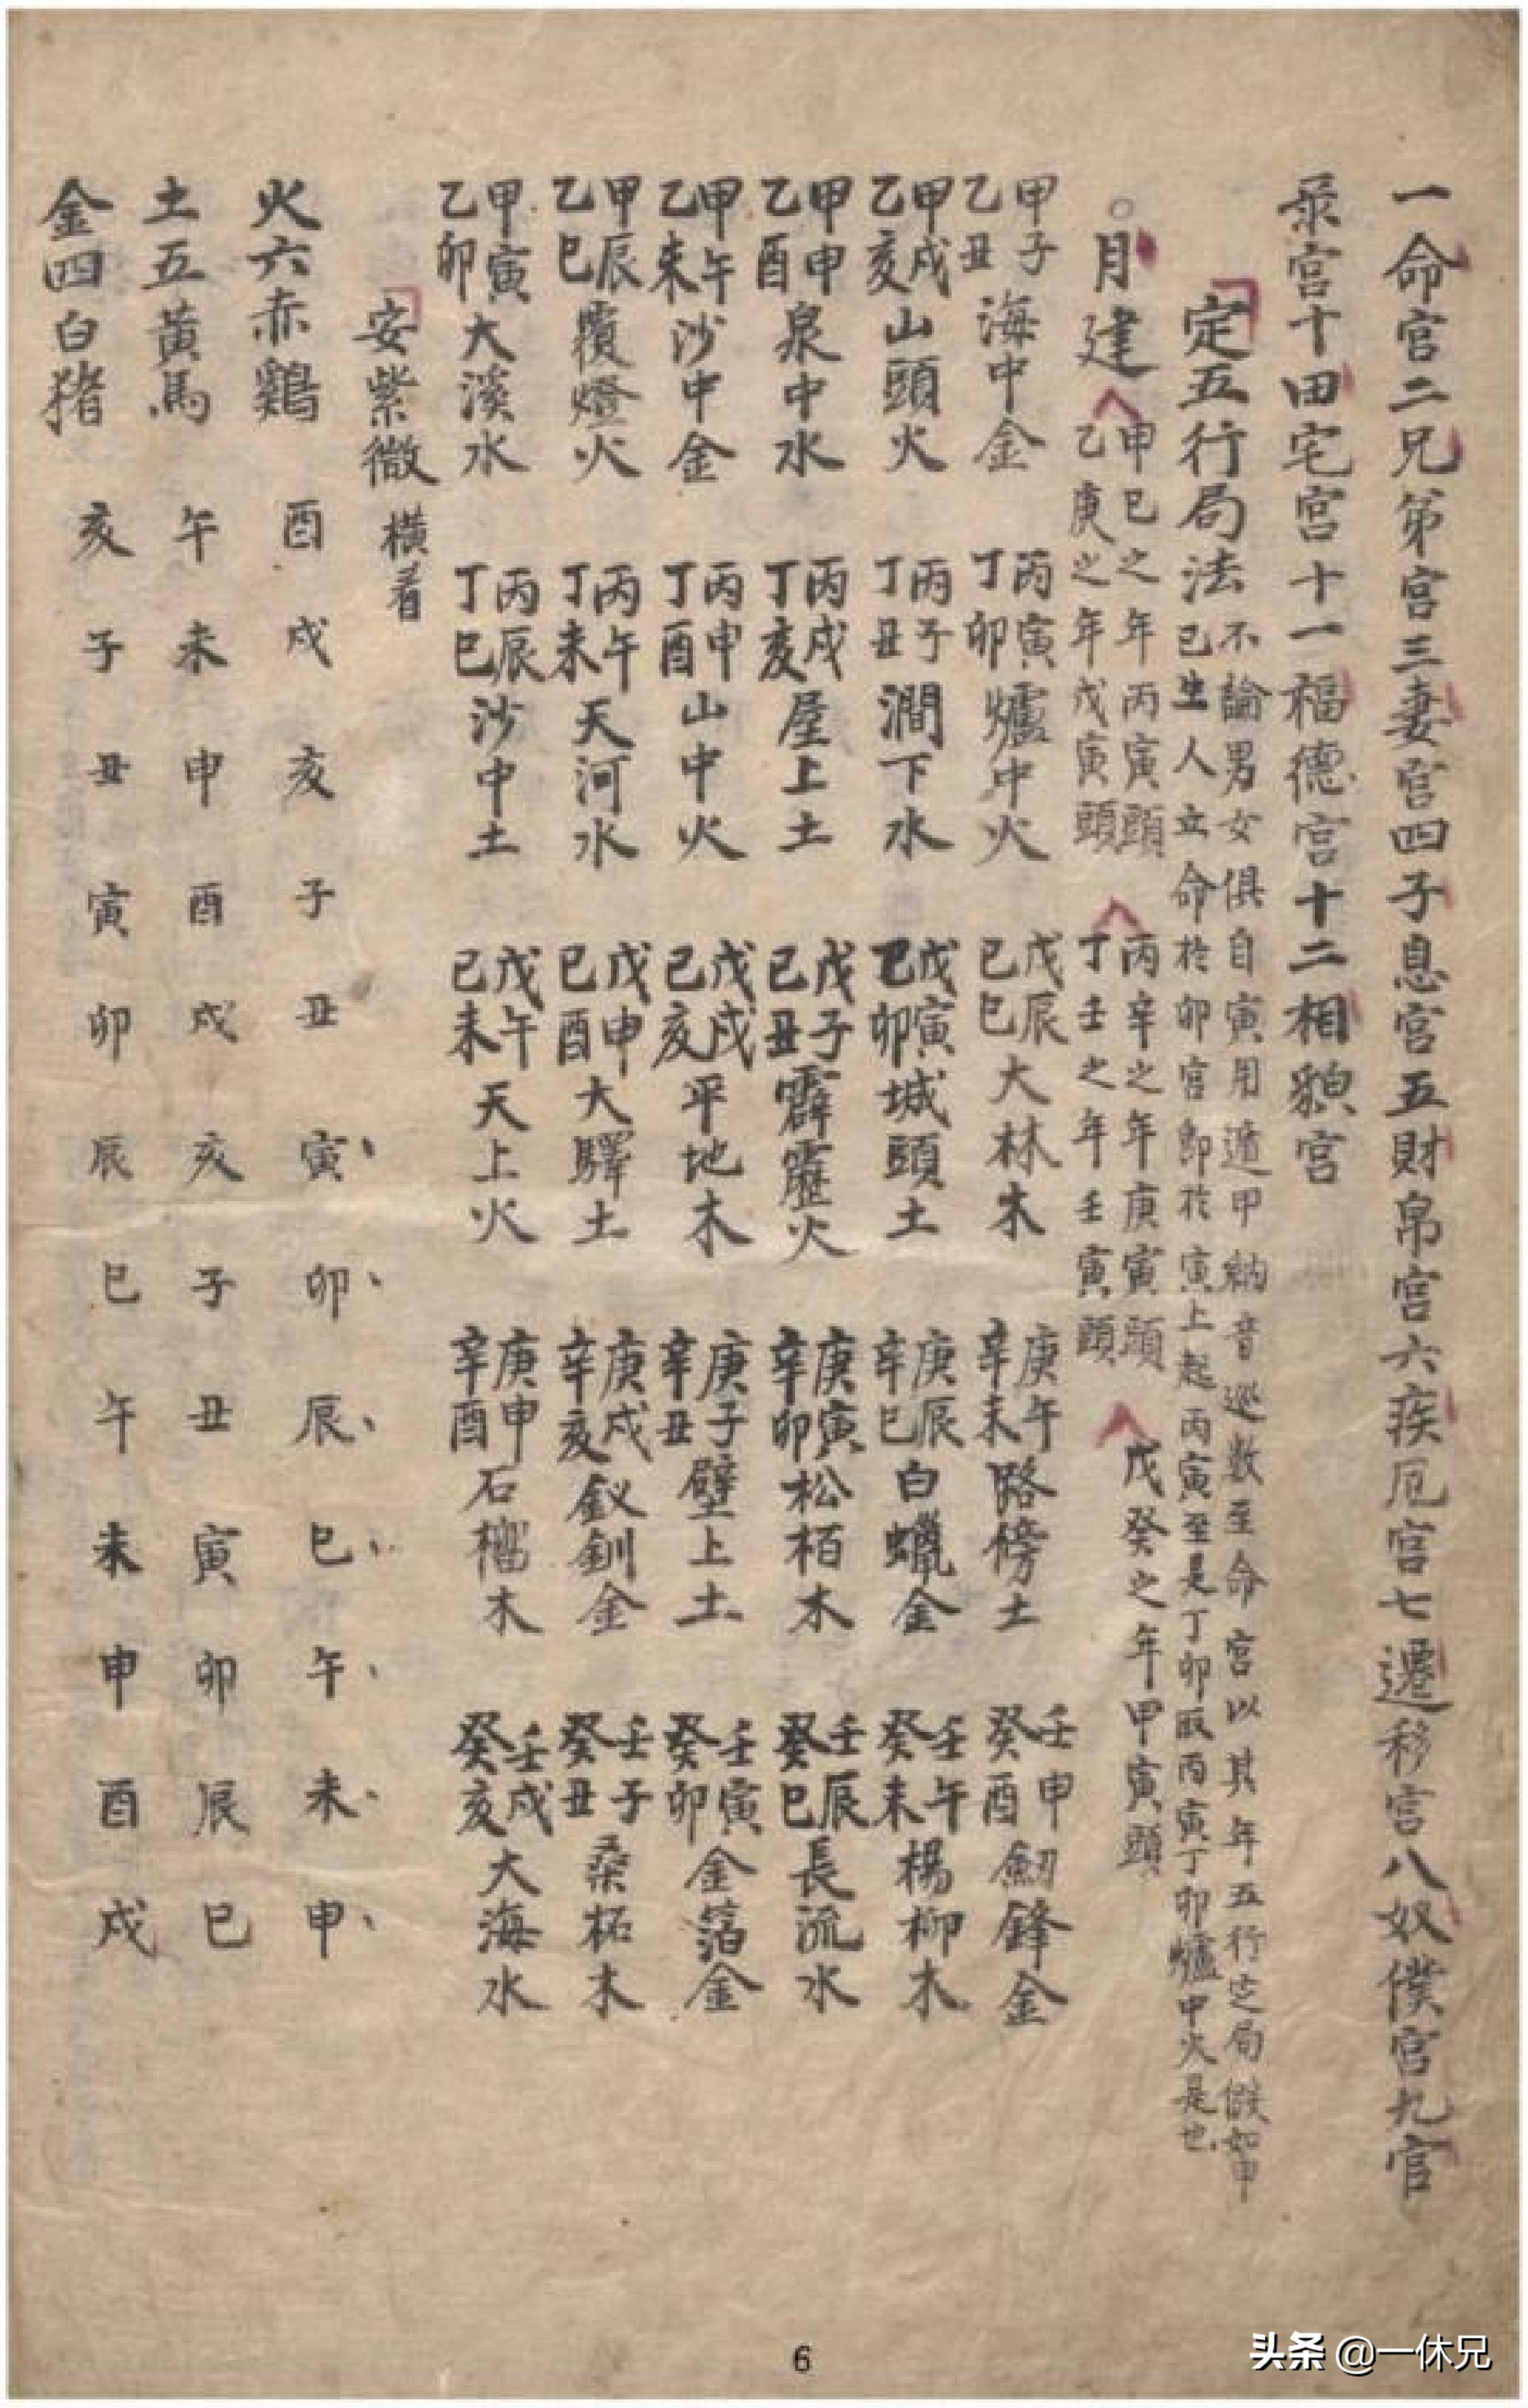 一命宫二兄弟宫三妻宫四子息宫五財帛宫六疾厄宫七遷移宫八奴僕宫九官
录宫十田宅宫十一福德宫十二相貌宫
定五行局法
不論男女俱自寅用遁甲納音巡数至命宫以其年五行定局假如甲
己生人立命於卯宫即於寅上起丙寅至是丁卯取丙寅丁卯爐中火是也
月建
甲己之年丙寅頭
乙庚之年戊寅頭
丙辛之年庚寅頭
丁壬之年壬寅頭
戊癸之年甲寅頭
甲子乙丑海中金 丙寅丁卯爐中火 戊辰己巳大林木 庚午辛未路傍土 壬申癸酉劔鋒金
甲戌乙亥山頭火 丙子丁丑澗下水 戊寅己卯城頭土 庚辰辛巳白蠟金 壬午癸未楊柳木
甲申乙酉泉中水 丙戌丁亥屋上土 戊子己丑霹靂火 庚寅辛卯松栢木 壬辰癸巳長流水
甲午乙未沙中金 丙申丁酉山中火 戊戌己亥平地木 庚子辛丑壁上土 壬寅癸卯金箔金
甲辰乙巳覆燈火 丙午丁未天河水 戊申己酉大驛土 庚戌辛亥釵釧金 壬子癸丑桑柘木
甲寅乙卯大溪水 丙辰丁巳沙中土 戊午己未天上火 庚申辛酉石榴木 壬戌癸亥大海水
安紫微 横看
火六赤鷄 酉 戌 亥 子 丑 寅 卯 辰 巳 午 未 申
土五黄馬 午 未 申 酉 戌 亥 子 丑 寅 卯 辰 巳
金四白猪 亥 子 丑 寅 卯 辰 巳 午 未 申 酉 戌
6
头条 @一休兄